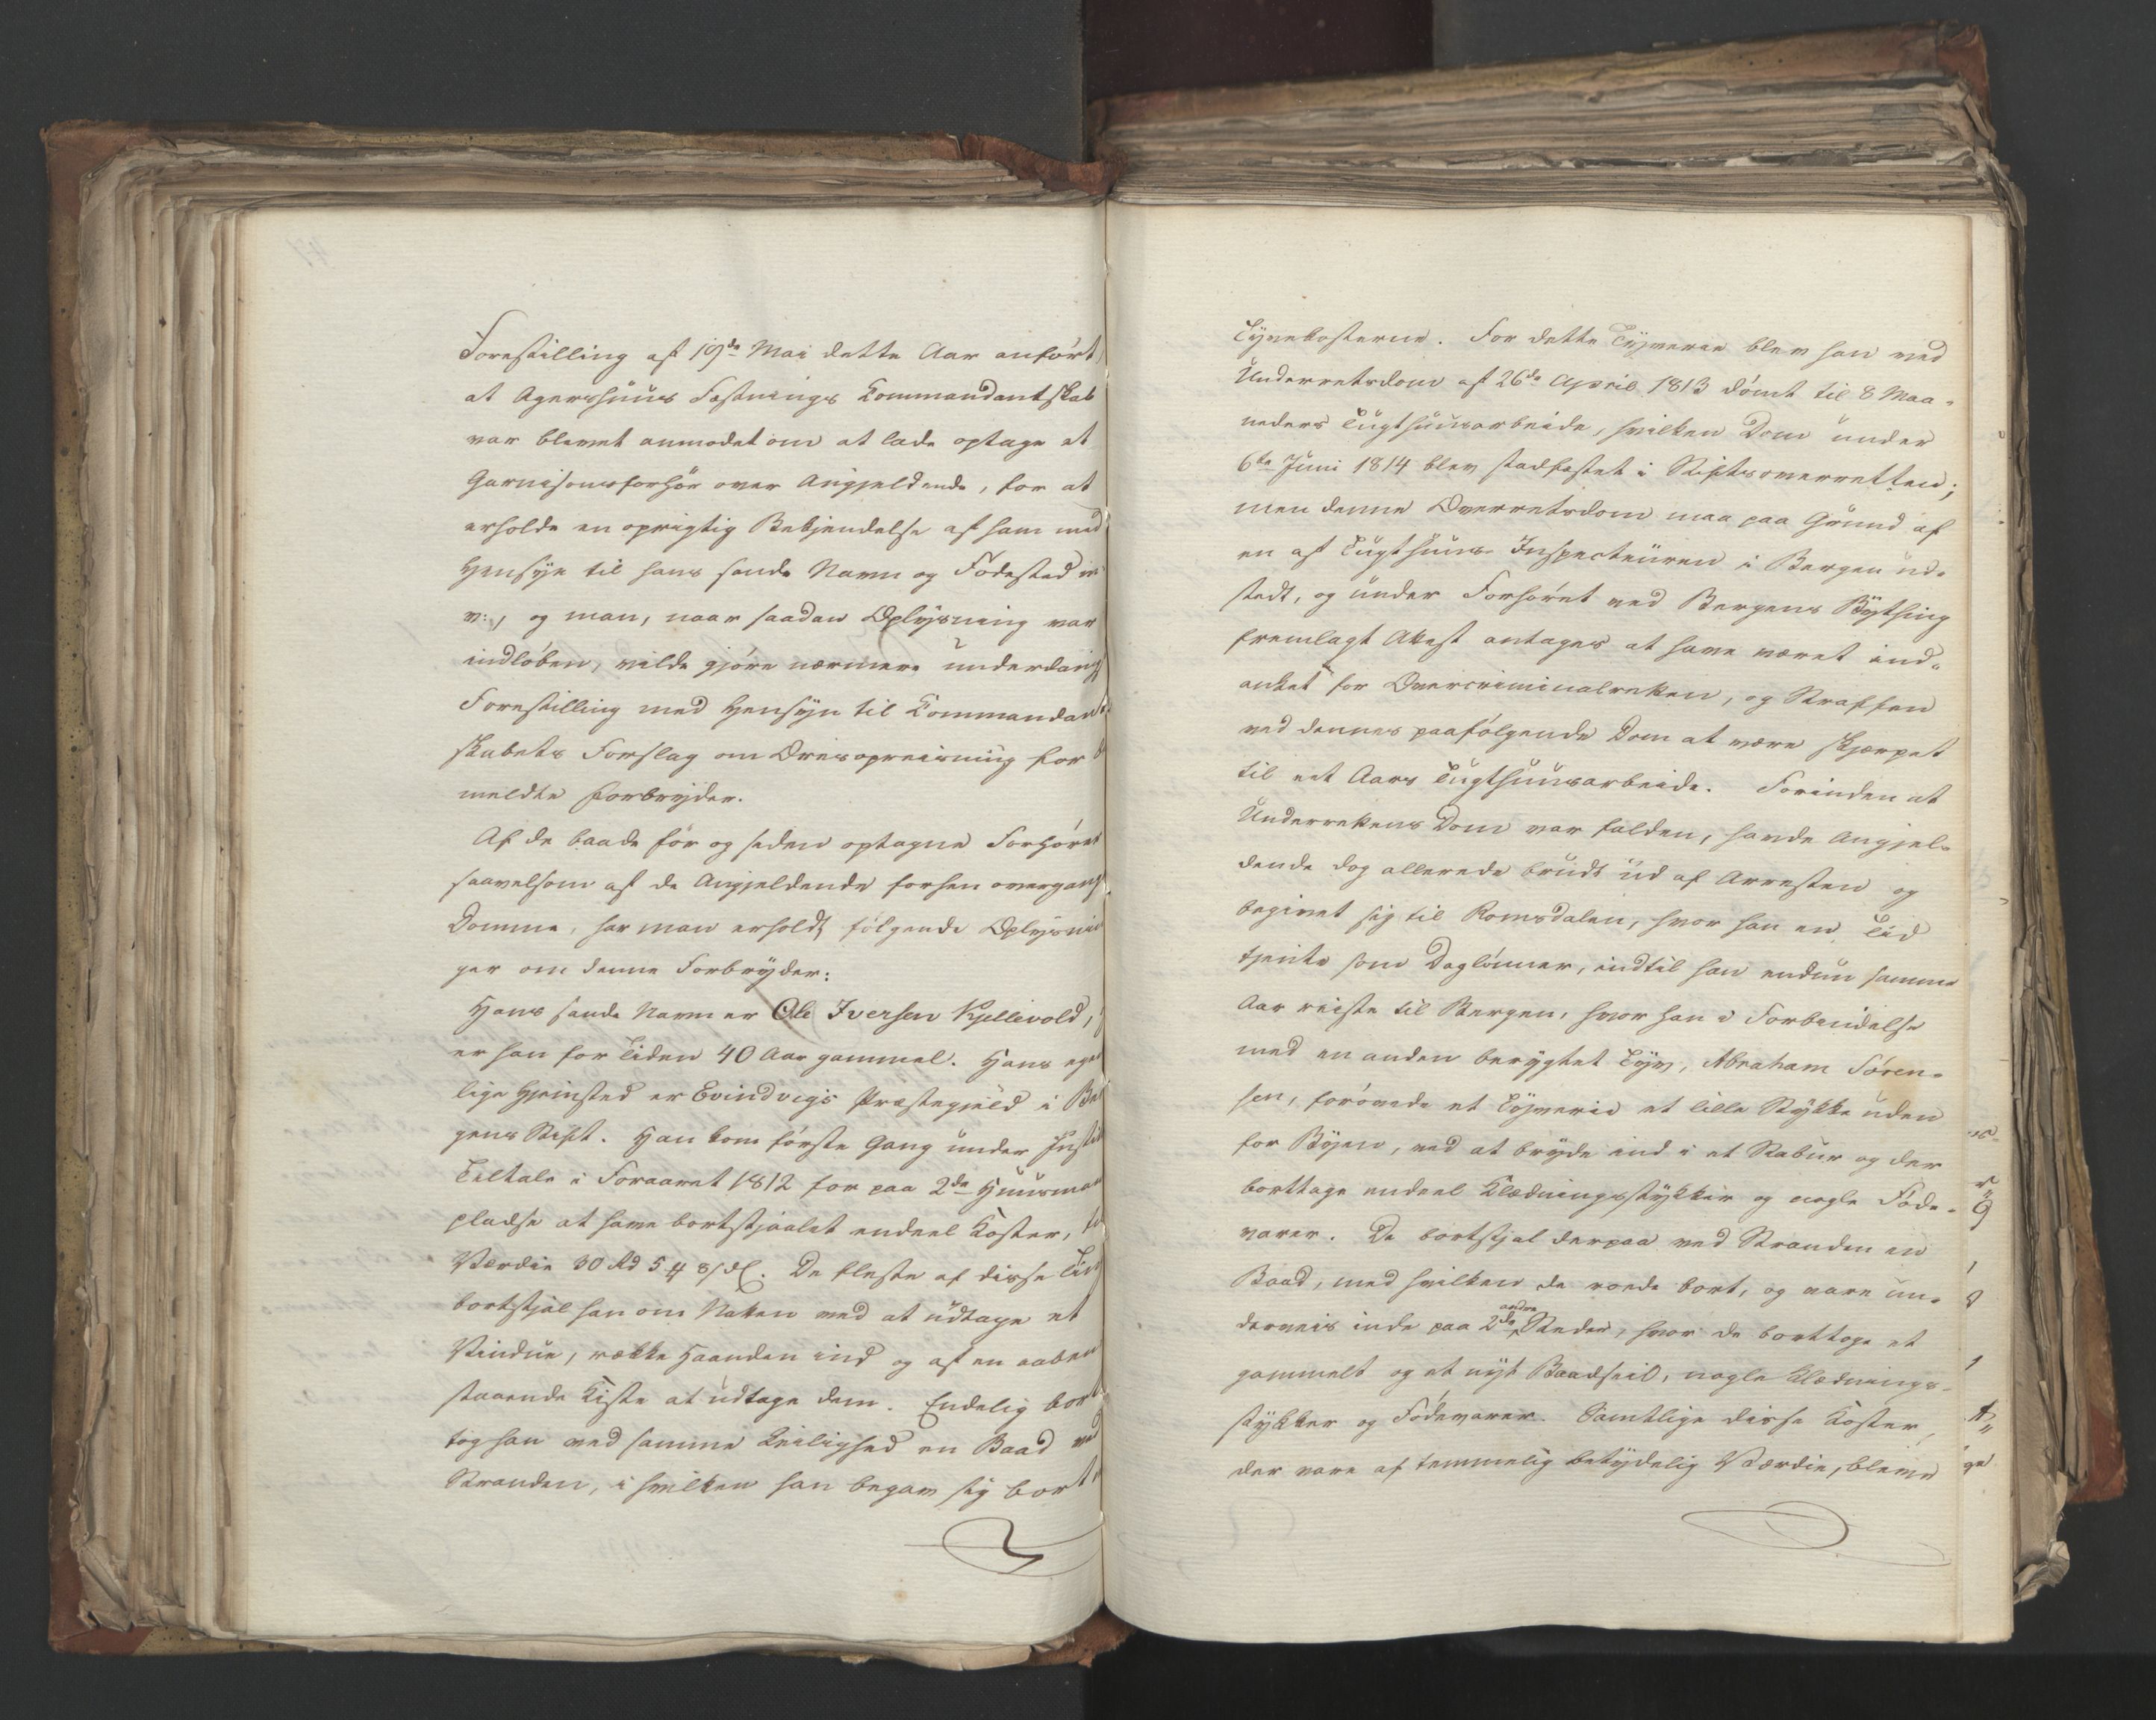 Forestilling af 19de Mai dette Aar anført,
at Agershuus Fæstnings Kommandantskab
var blevet anmodet om at lade optage et
Garnisonsforhör over Angjeldende, for at
erholde en oprigtig Bekjendelse af ham med
Hensyn til hans sande Navn og Födested m:
v:, og man, naar saadan Oplysning var
indløben, vilde gjöre nærmere underdanig
Forestilling med Hensyn til Kommandant
skabets Forslag om Æresopreisning for be
meldte Forbryder.
Af de baade för og siden optagne Forhörer
saavelsom af de Angjeldende forhen overgang
Domme, har man erholdt fölgende Oplysnin
ger om denne Forbryder:
Hans sande Navn er Ole Iversen Kjellevold,
er han for Tiden 40 Aar gammel. Hans egent
lige Hjemsted er Evindvigs Præstegjeld i Ber
gens Stift. Han kom förste Gang under Justits
Tiltale i Foraaret 1812 for paa 2de Huusmands
pladse at have bortstjaalet endeel Koster, til
Værdie 30 Rd 5 ℔ 8 s. De fleste af disse Ting
bortstjal han om Natten ved at udtage et
Vindue, række Haanden ind og af en aaben
staaende Kiste at udtage dem. Endelig bort
tog han ved samme Leilighed en Baad ved
Stranden, i hvilken han begav sig bort
Tyvekosterne. For dette Tyverie blev han ved
Underretsdom af 26de April 1813 dömt til 8 Maa-
neders Tugthuusarbeide, hvilken Dom under
6te Juni 1814 blev stadfæstet i Stiftsoverretten;
men denne Overretsdom maa paa Grund af
en af Tugthuus-Inspecteuren i Bergen ud-
stedt, og under Forhöret ved Bergens Bything
fremlagt Attest antages at have været ind-
anket for Overcriminalretten, og Straffen
ved dennes paafölgende Dom at være skjærpet
til eet Aars Tugthuusarbeide. Forinden at
Underrettens Dom var falden, havde Angjel-
dende dog allerede brudt ud af Arresten og
begivet sig til Romsdalen, hvor han en Tid
tjente som Daglönner, indtil han endnu samme
Aar reiste til Bergen, hvor han i Forbindelse
med en anden berygtet Tyv, Abraham Sören-
sen, forövede et Tyverie et lille Stykke uden
for Byen, ved at bryde ind i et Stabur og der
borttage endeel Klædningsstykker og nogle Föde-
varer. De bortstjal derpaa ved Stranden en
Baad, med hvilken de roede bort, og vare un-
derveis inde paa 2de andre Steder, hvor de borttoge et
gammelt og et nyt Baadseil, nogle Klædnings-
stykker og Födevarer. Samtlige disse Koster,
der vare af temmelig betydelig Værdie, bleve